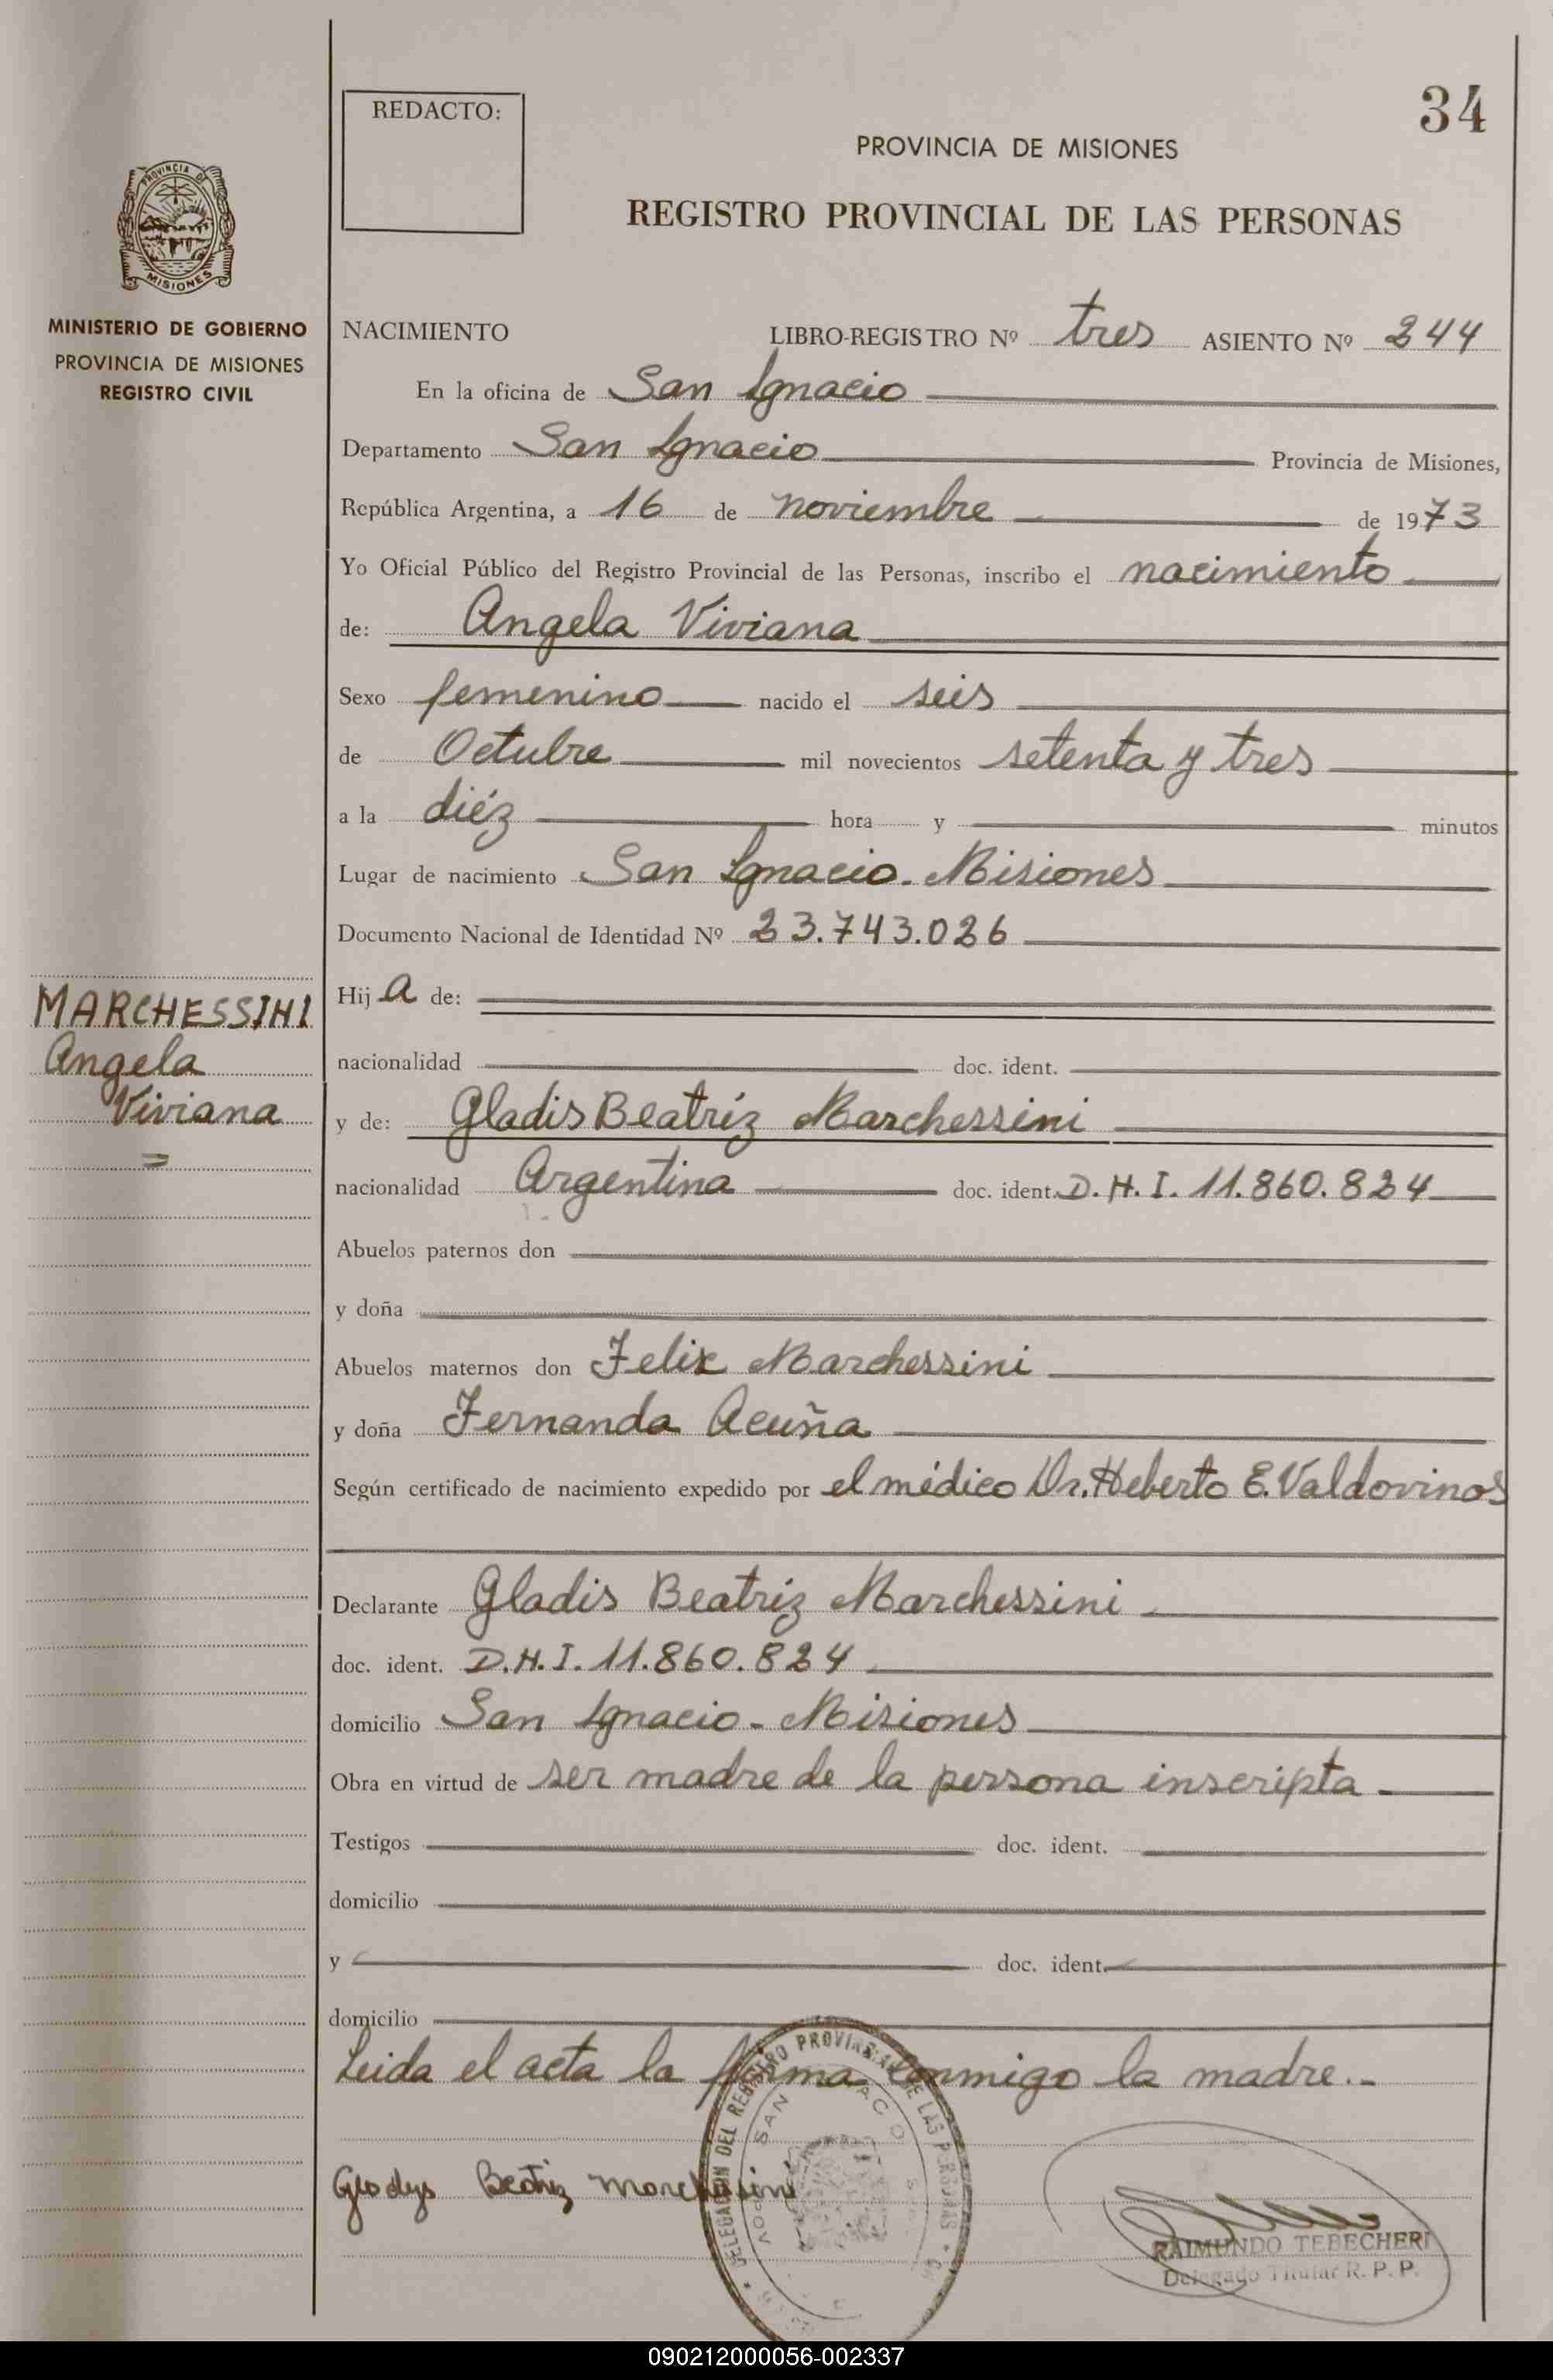 34
REDACTO:
PROVINCIA DE MISIONES
REGISTRO PROVINCIAL DE LAS PERSONAS
PROVINCIA DE
MISIONES
MINISTERIO DE GOBIERNO
PROVINCIA DE MISIONES
REGISTRO CIVIL
NACIMIENTO LIBRO-REGISTRO Nº tres ASIENTO Nº 244
En la oficina de San Ignacio
Departamento San Ignacio Provincia de Misiones,
República Argentina, a 16 de noviembre de 1973
Yo Oficial Público del Registro Provincial de las Personas, inscribo el nacimiento
de: Angela Viviana
Sexo femenino nacido el seis
de Octubre mil novecientos setenta y tres
a la diéz hora y minutos
Lugar de nacimiento San Ignacio. Misiones
Documento Nacional de Identidad Nº 23.743.026
MARCHESSINI
Angela
Viviana
Hij a de:
nacionalidad doc. ident.
y de: Gladis Beatríz Marchessini
nacionalidad Argentina doc. ident. D.N.I. 11.860.824
Abuelos paternos don
y doña
Abuelos maternos don Felix Marchessini
y doña Fernanda Acuña
Según certificado de nacimiento expedido por el médico Dr. Heberto E. Valdovinos
Declarante Gladis Beatriz Marchessini
doc. ident. D.N.I. 11.860.824
domicilio San Ignacio - Misiones
Obra en virtud de ser madre de la persona inscripta
Testigos doc. ident.
domicilio
y doc. ident.
domicilio
Leida el acta la firma conmigo la madre.-
DELEGACION DEL REGISTRO PROVINCIAL DE LAS PERSONAS
SAN IGNACIO
Gladys Beatriz Marchesini
RAIMUNDO TEBECHERI
Delegado Titular R. P. P.
090212000056-002337